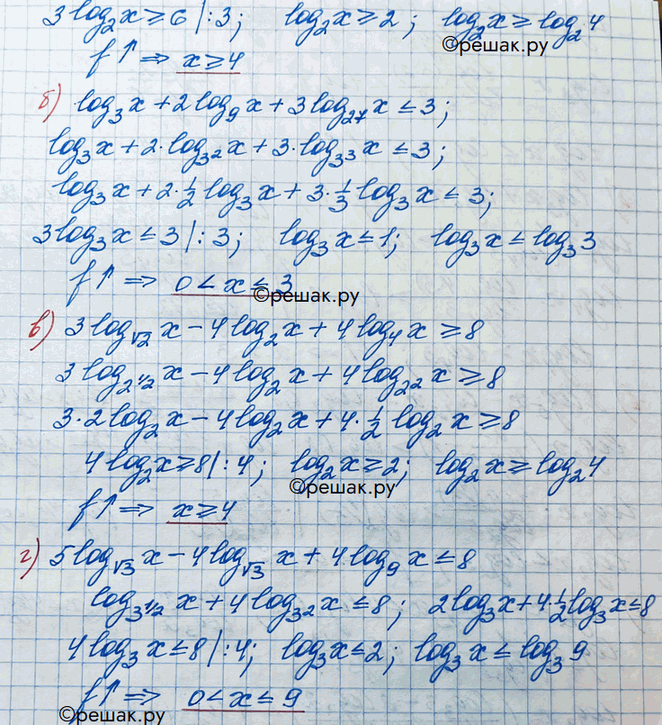 3log₂x ≥ 6 |:3; log₂x ≥ 2; log₂x ≥ log₂4
©решак.ру
f↑ ⇒ x ≥ 4
б) log₃x + 2log₉x + 3log₂₇x ≤ 3;
log₃x + 2·log_{3²}x + 3·log_{3³}x ≤ 3;
log₃x + 2·½log₃x + 3·⅓log₃x ≤ 3;
3log₃x ≤ 3 |:3; log₃x ≤ 1; log₃x ≤ log₃3
f↑ ⇒ 0 < x ≤ 3
©решак.ру
в) 3log_{√2}x − 4log₂x + 4log₄x ≥ 8
3log_{2^{1/2}}x − 4log₂x + 4log_{2²}x ≥ 8
3·2log₂x − 4log₂x + 4·½log₂x ≥ 8
4log₂x ≥ 8 |:4; log₂x ≥ 2; log₂x ≥ log₂4
©решак.ру
f↑ ⇒ x ≥ 4
г) 5log_{√3}x − 4log_{√3}x + 4log₉x ≤ 8
log_{3^{1/2}}x + 4log_{3²}x ≤ 8; 2log₃x + 4·½log₃x ≤ 8
4log₃x ≤ 8 |:4; log₃x ≤ 2; log₃x ≤ log₃9
f↑ ⇒ 0 < x ≤ 9
©решак.ру